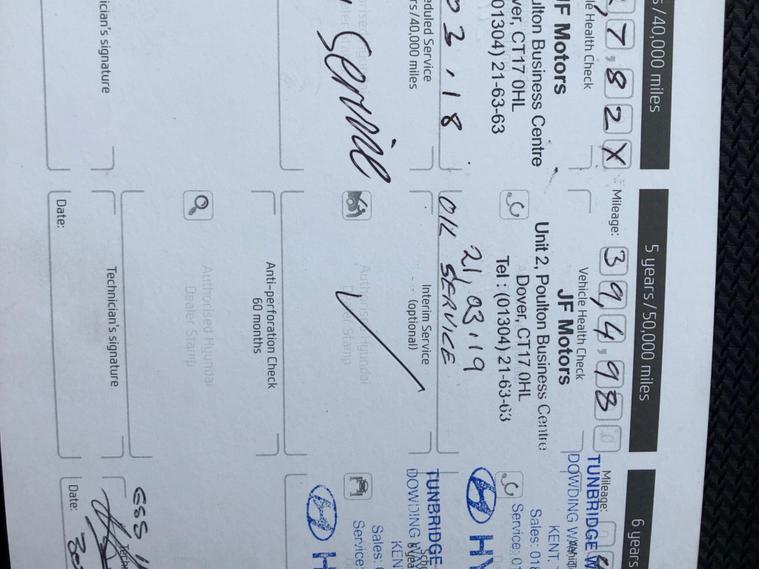 s / 40,000 miles
7,82X
le Health Check
JF Motors
ulton Business Centre
ver, CT17 0HL
01304) 21-63-63
03.18
eduled Service
rs/40,000 miles
Service
ician's signature
5 years / 50,000 miles
Mileage: 39,498
Vehicle Health Check
JF Motors
Unit 2, Poulton Business Centre
Dover, CT17 0HL
Tel : (01304) 21-63-63
21.03.19
OIL SERVICE
Interim Service
(optional)
Authorised Hyundai
Stamp
Anti-perforation Check
60 months
Authorised Hyundai
Dealer Stamp
Technician's signature
Date:
6 years
Mileage:
TUNBRIDGE W
DOWDING W
KENT,
Sales: 018
Service: 01
HY
TUNBRIDGE
DOWDING W
KEN
Sales:
Service:
H
Date: